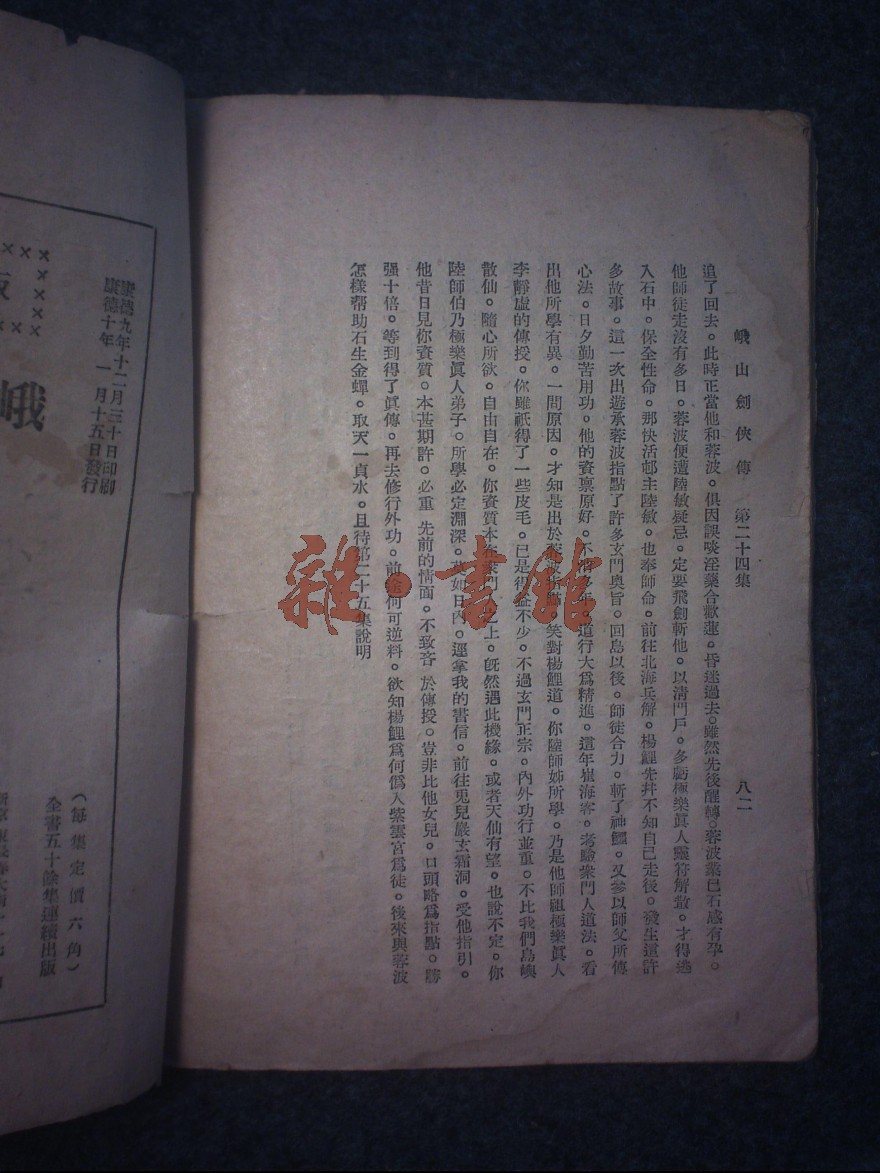 峨山劍俠傳 第二十四集 八二
追了回去。此時正當他和蓉波。俱因誤啖淫藥合歡蓮。昏迷過去。雖然先後醒轉。蓉波業已石感有孕。
他師徒走沒有多日。蓉波便遭陸敏疑忌。定要飛劍斬他。以清門戶。多虧極樂眞人靈符解救。才得逃
入石中。保全性命。那快活邨主陸敏。也奉師命。前往北海兵解。楊鯉先并不知自己走後。發生這許
多故事。這一次出遊承蓉波指點了許多玄門奧旨。回島以後。師徒合力。斬了神鱷。又參以師父所傳
心法。日夕勤苦用功。他的資禀原好。不消多年。道行大爲精進。這年崔海客。考驗衆門人道法。看
出他所學有異。一問原因。才知是出於蓉波指點。笑對楊鯉道。你陸師姊所學。乃是他師祖極樂眞人
李靜虛的傳授。你雖祇得了一些皮毛。已是得益不少。不過玄門正宗。內外功行並重。不比我們島嶼
散仙。隨心所欲。自由自在。你資質本在衆門人之上。旣然遇此機緣。或者天仙有望。也說不定。你
陸師伯乃極樂眞人弟子。所學必定淵深。莫如日內。逕拿我的書信。前往兎兒巖玄霜洞。受他指引。
他昔日見你資質。本甚期許。必重 先前的情面。不致吝 於傳授。豈非比他女兒。口頭略爲指點。勝
强十倍。等到得了眞傳。再去修行外功。前途何可逆料。欲知楊鯉爲何僞入紫雲宮爲徒。後來與蓉波
怎樣帮助石生金蟬。取天一貞水。且待第二十五集說明
雜·書館
版
峨
康德九年十二月三十日印刷
康德十年 一月十五日發行
(每集定價六角)
全書五十餘集連續出版